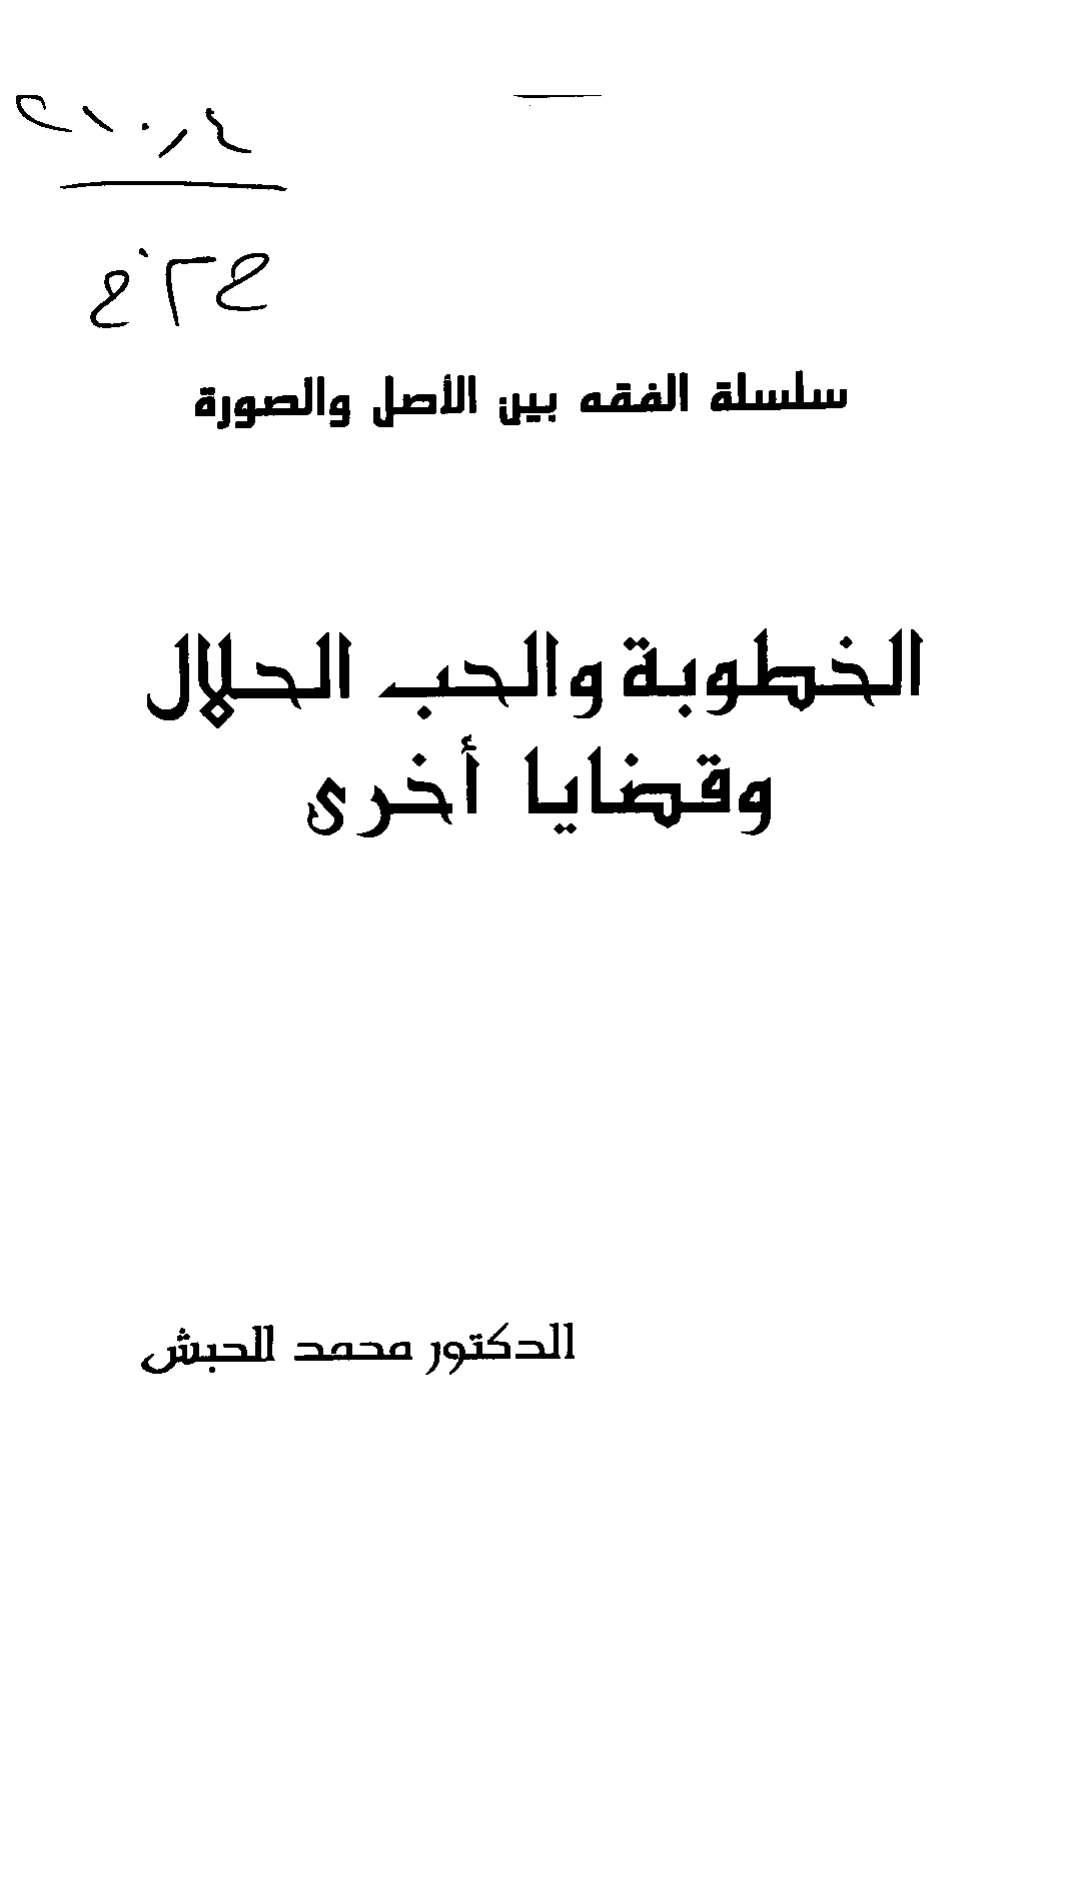 سلسلة الفقه بين الأصل والصورة
الخطوبة والحب الحلال
وقضايا أخرى
الدكتور محمد الحبش